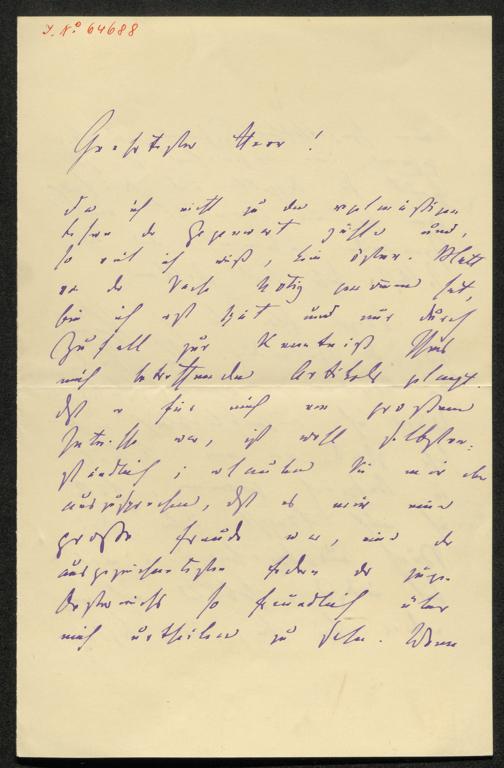 I. No 64688
Geehrtester Herr!
Da ich nicht zu den regelmäßigen
Lesern der Gegenwart zähle und,
so viel ich weiß, kein österr. Blatt
es der Mühe nötig gefunden hat,
bin ich erst spät und nur durch
Zufall zur Kenntniß Ihres
mich betreffenden Artikels gelangt.
Daß er für mich von großem
Interesse war, ist wohl selbstver-
ständlich; erlauben Sie mir aber
auszusprechen, daß es mir eine
große Freude war, eine der
ausgezeichnetsten Federn des jungen
Oesterreichs so freundlich über
mich urtheilen zu sehen. Wenn